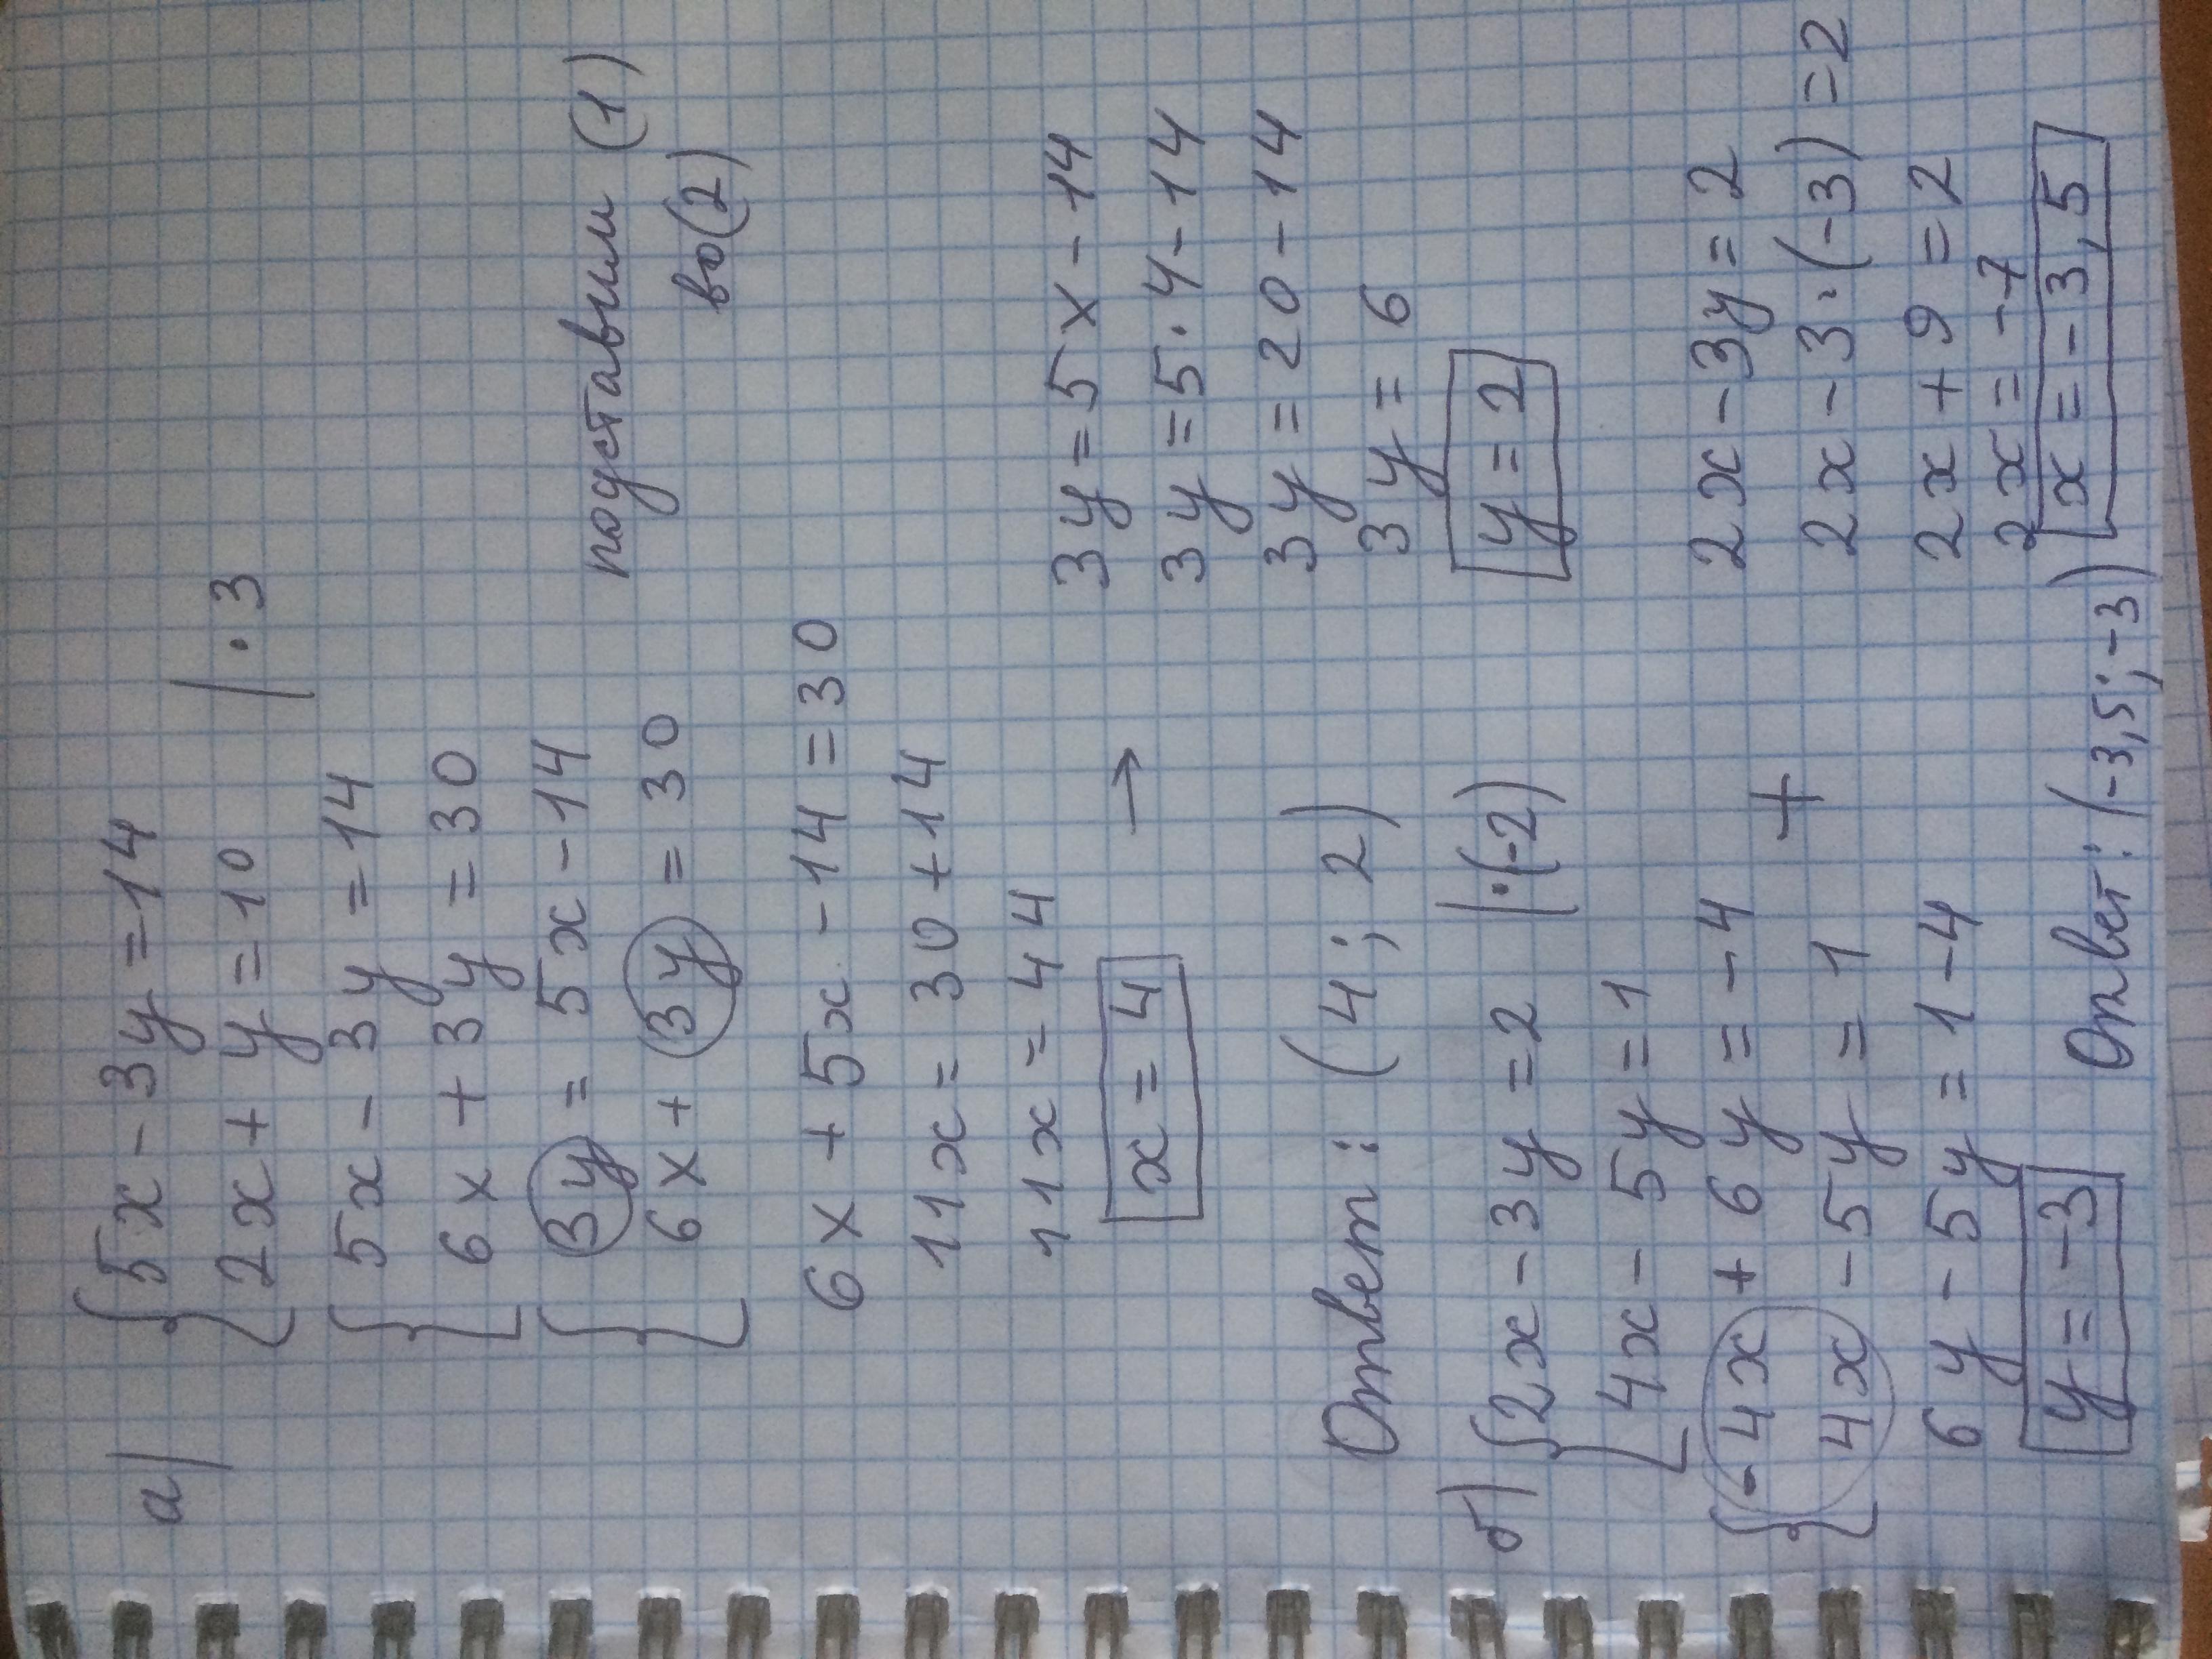 а) {5x - 3y = 14
2x + y = 10 | · 3
{5x - 3y = 14
6x + 3y = 30
{3y = 5x - 14 подставим (1)
6x + 3y = 30 во (2)
6x + 5x - 14 = 30
11x = 30 + 14
11x = 44
x = 4 →
3y = 5x - 14
3y = 5 · 4 - 14
3y = 20 - 14
3y = 6
y = 2
Ответ: (4; 2)
б) {2x - 3y = 2 | · (-2)
4x - 5y = 1
{-4x + 6y = -4
4x - 5y = 1 +
6y - 5y = 1 - 4
y = -3
2x - 3y = 2
2x - 3 · (-3) = 2
2x + 9 = 2
2x = -7
x = -3,5
Ответ: (-3,5; -3)